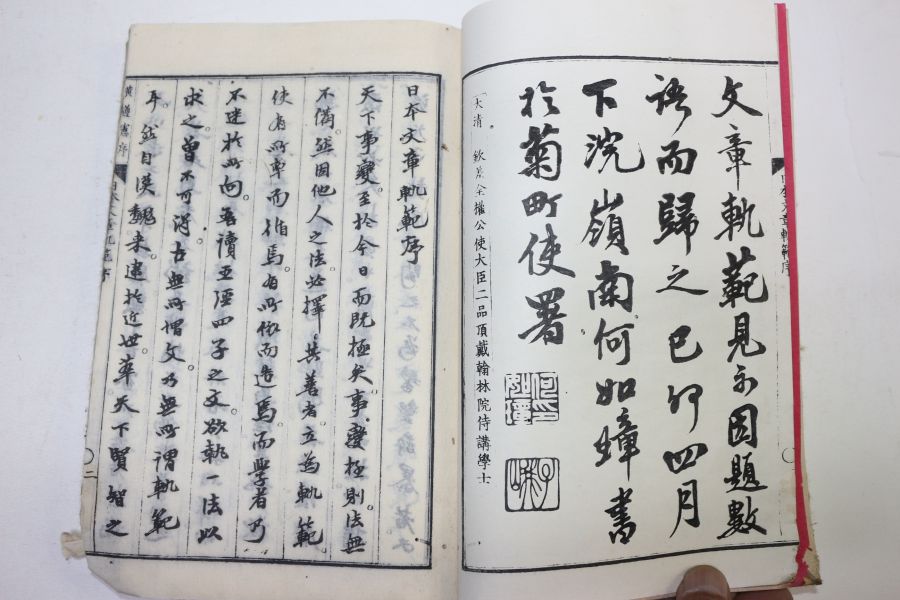 文章軌範見示因題數
語而歸之己卯四月
下浣嶺南何如璋書
於菊町使署
何如璋印
子峨
大清 欽差全權公使大臣二品頂戴翰林院侍講學士
日本文章軌範序
日本文章軌範序
天下事變。至於今日而既極矣。事變極則法無
不備。然因他人之法。必擇其善者。立為軌範。
使有所率而循焉。有所依而造焉。而學者乃
不迷於所向。吾讀五經四子之文。欲執一法以
求之。曾不可得。古無所謂文。乃無所謂軌範
耳。然自漢魏來。逮於近世。率天下賢智之
黃遵憲序
日本文章軌範序
二